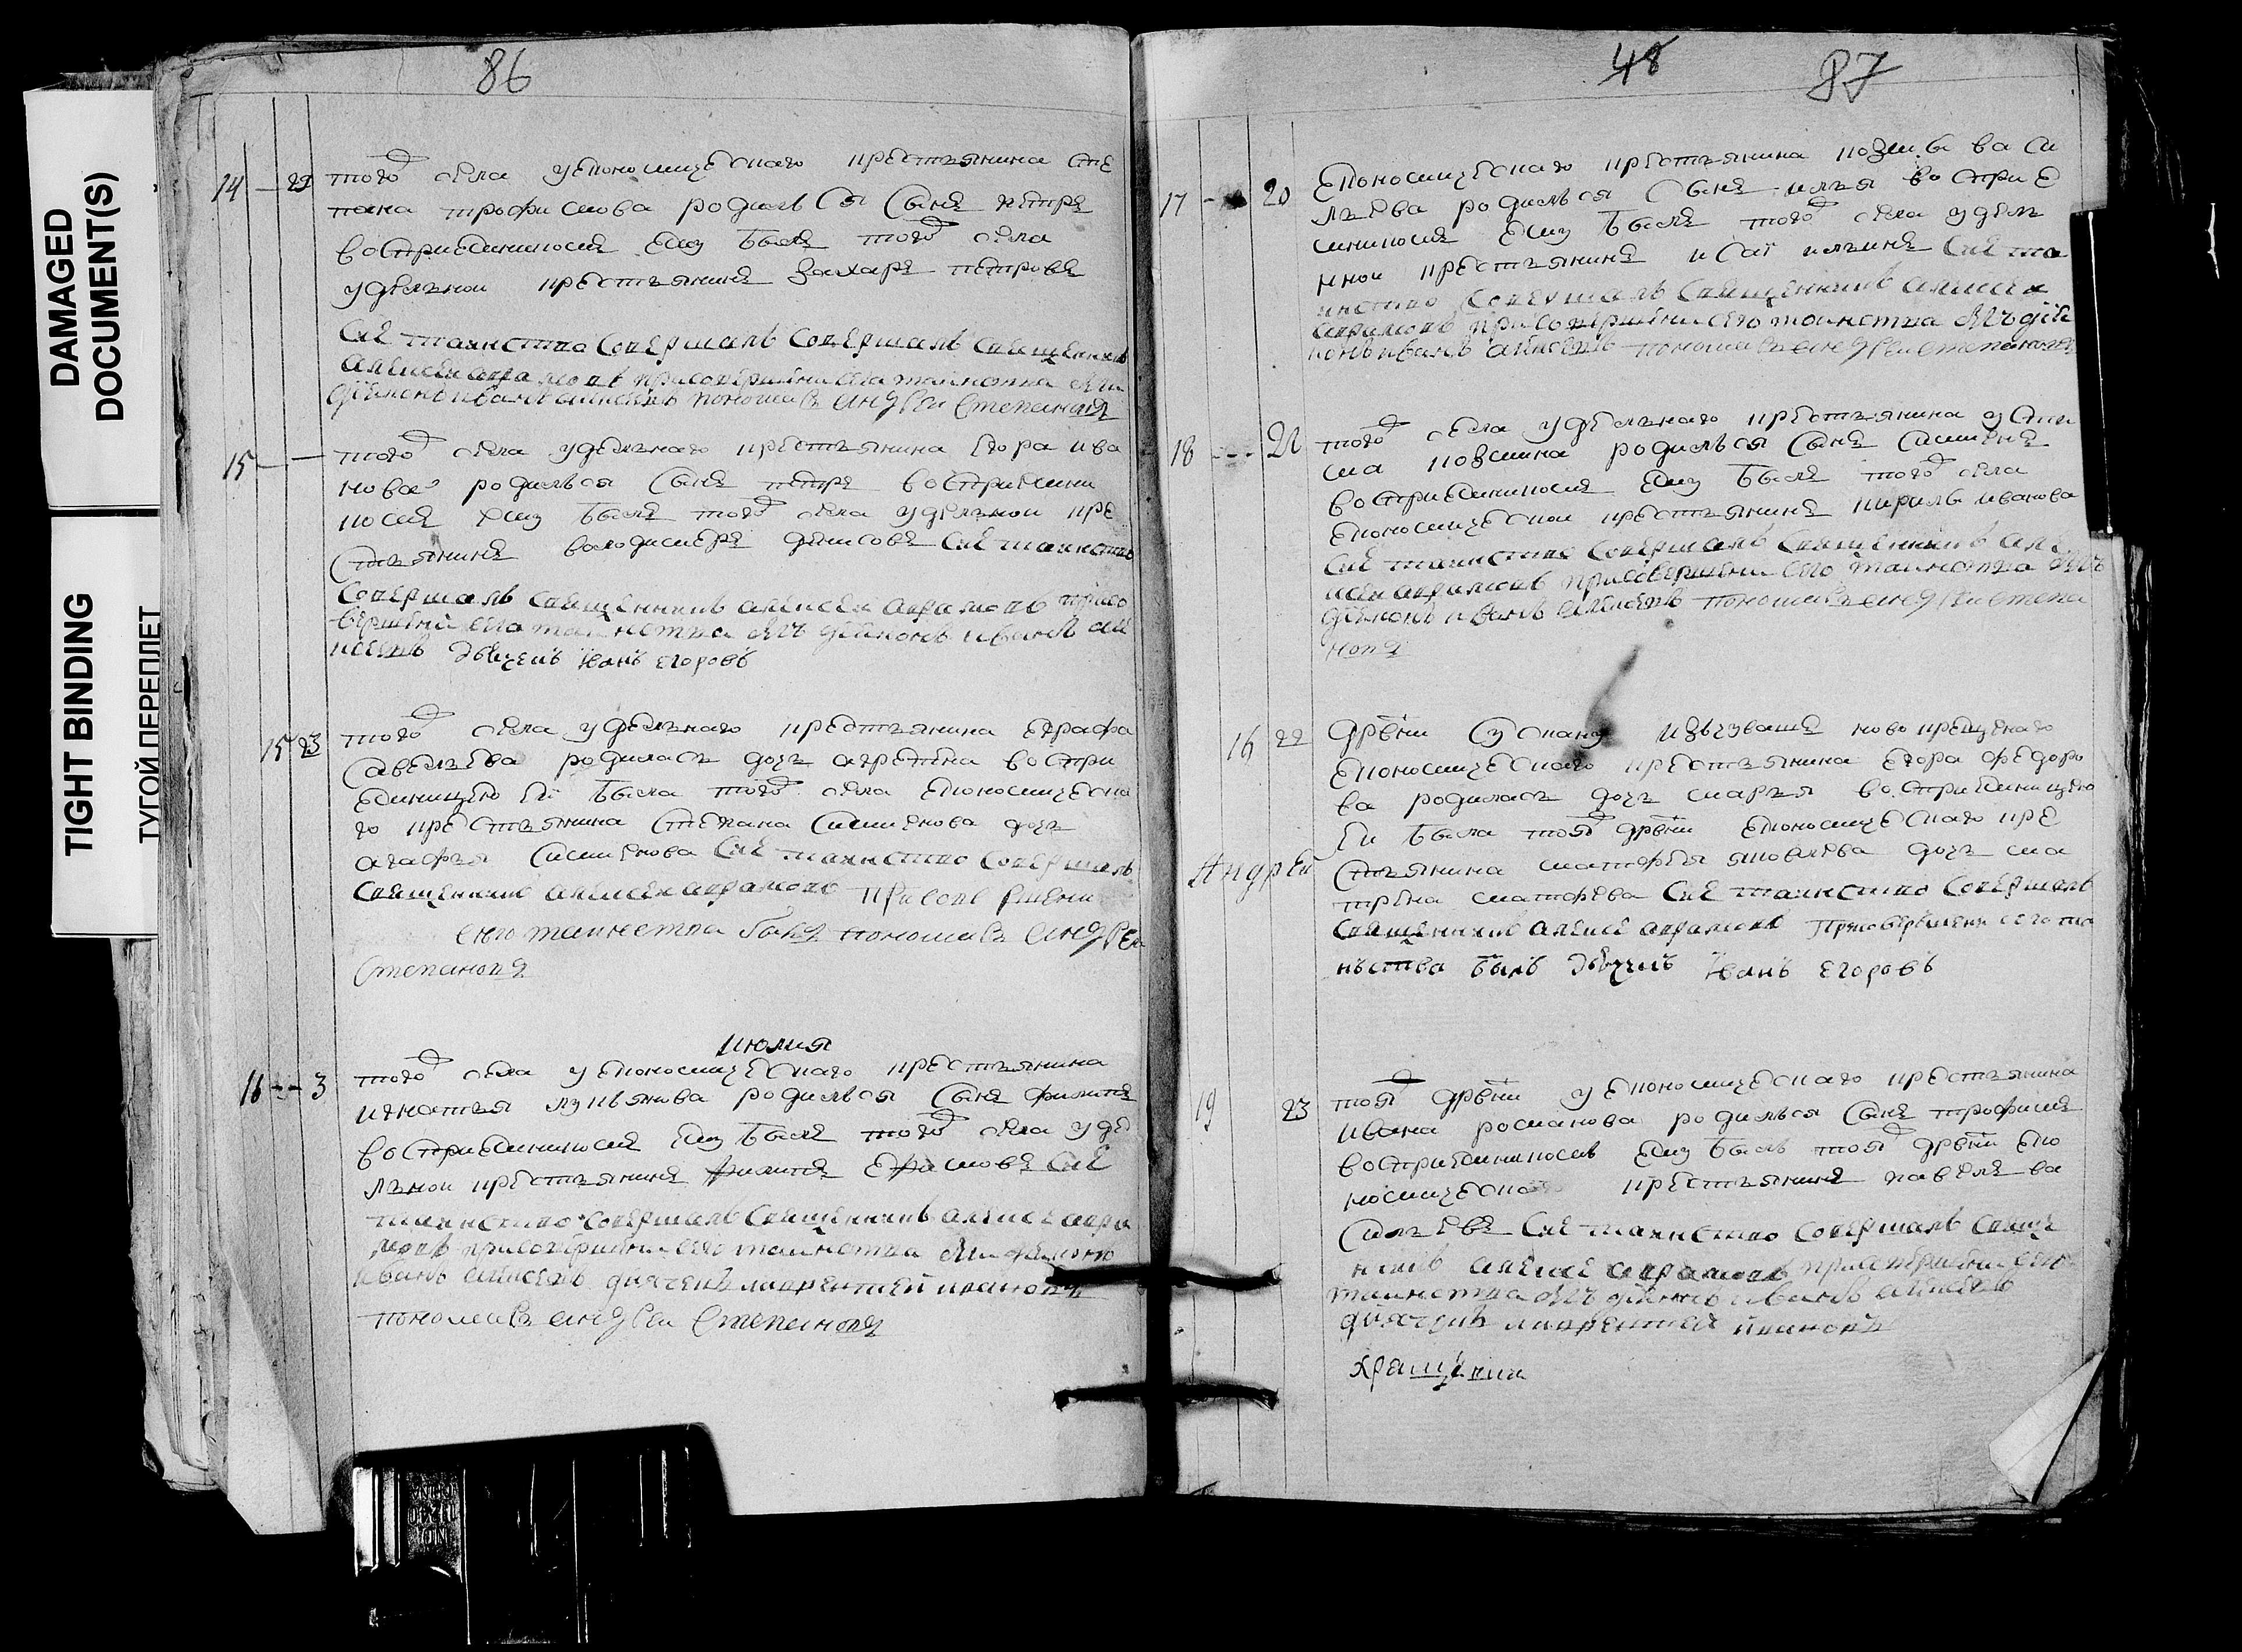 DAMAGED
DOCUMENT(S)
TIGHT BINDING
ТУГОЙ ПЕРЕПЛЕТ
86
14 — 29 того села у економическаго крестьянина сте
пана трофимова родился сынъ петръ
восприемникомъ ему былъ того села
удѣльной крестьянинъ захаръ петровъ
сие таинство совершалъ совершалъ священникъ
алексеи аврамовъ при совершении сего таинства были
диаконъ иванъ алексеевъ пономарь андреи степановъ
15 — — того села удельнаго крестьянина егора ива
нова родился сынъ петръ восприемни
комъ ему былъ того села удѣльной кре
стьянинъ володимеръ денисовъ сие таинство
совершалъ священникъ алексеи аврамовъ при со
вершении сего таинства былъ диаконъ иванъ але
ксеевъ дьячекъ иванъ егоровъ
15 23 того села удельнаго крестьянина ефрафа
савельева родилась дочь агрепена воспри
емницею ей была того села економическа
го крестьянина степана семенова дочь
агафья семенова сие таинство совершалъ
священникъ алексеи аврамовъ при совершении
сего таинства былъ пономарь андреи
степановъ
июлия
16 — — 3 того села у економическаго крестьянина
игнатья лукьянова родился сынъ филипъ
восприемникомъ ему былъ того села удѣ
льной крестьянинъ филипъ ефимовъ сие
таинство совершалъ священникъ алексеи авра
мовъ при совершении сего таинства были диаконъ
иванъ алексеевъ дьячекъ лаврентей ивановъ
пономарь андреи степановъ
48 87
17 — 20 економическаго крестьянина козмы васи
льева родился сынъ илья восприе
мникомъ ему былъ того села удель
нной крестьянинъ исаи ильинъ сие та
инство совершалъ священникъ алексеи
аврамовъ при совершении сего таинства былъ диа
конъ иванъ алексеевъ пономарь андреи степановъ
18 — — 21 того села удельнаго крестьянина усти
ма козмина родился сынъ семенъ
восприемникомъ ему былъ того села
економической крестьянинъ кирилъ иванова
сие таинство совершалъ священникъ але
ксеи аврамовъ при совершении сего таинства былъ
диаконъ иванъ алексеевъ пономарь андреи степа
новъ
16 22 дрвни изъ чувашъ новокрещенаго
економическаго крестьянина егора федоро
ва родилась дочь марья восприемницею
ей была той дрвни економическаго кре
Андрей
стьянина матфея яковлева дочь ма
трена матфева сие таинство совершалъ
священникъ алексе аврамовъ при совершении сего таи
нъства былъ дьячекъ иванъ егоровъ
19 23 той дрвни у економическаго крестьянина
ивана романова родился сынъ трофимъ
восприемникомъ ему былъ той дрвни еко
номическо крестьянинъ павелъ ва
сильевъ сие таинство совершалъ свяще
нникъ алексе аврамовъ при совершении сего
таинства былъ диаконъ иванъ алексеевъ
дьячекъ лаврентей ивановъ
крещении